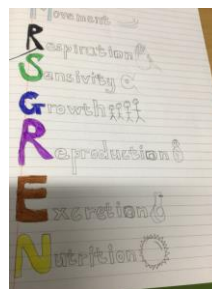 Movement
Respiration
Sensivity
Growth
Reproduction
Excretion
Nutrition